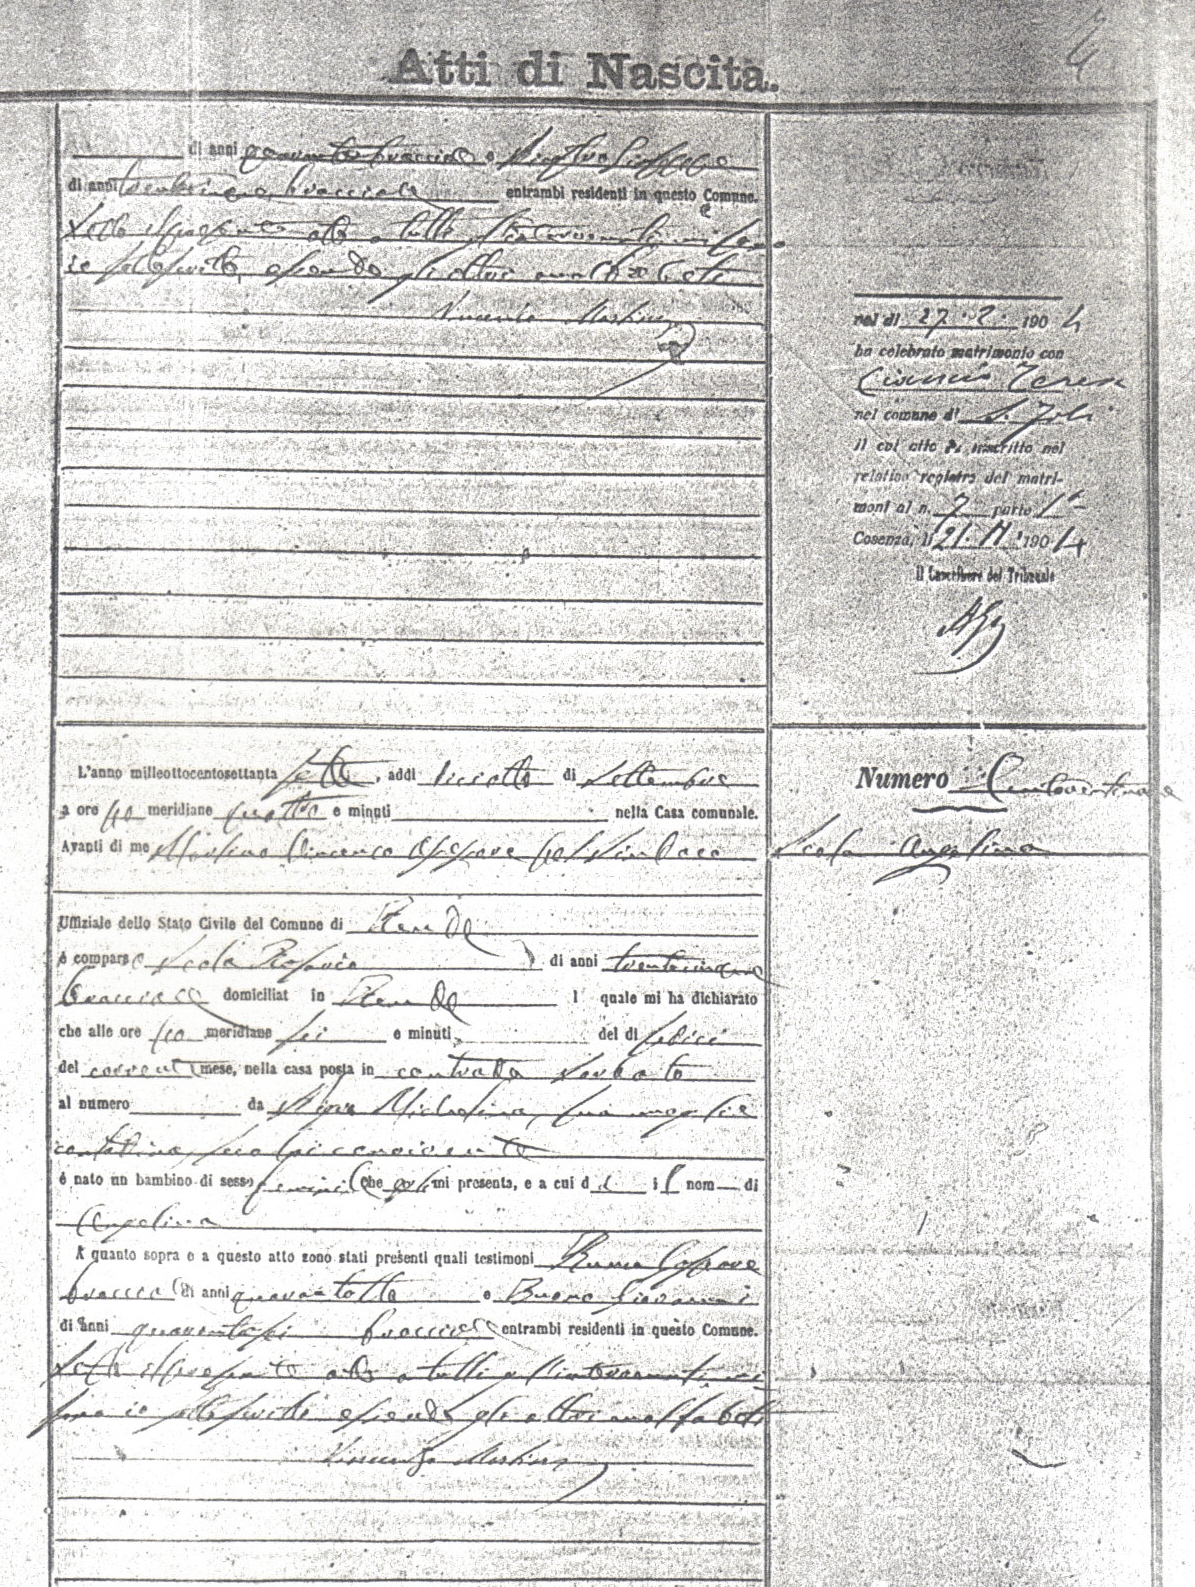 Atti di Nascita.
di anni quaranta bracciale e Giuseppe
di anni trentacinque, bracciale entrambi residenti in questo Comune.
Letto il presente atto a tutti gl'intervenuti, mi sono
io sottoscritto, essendo gli altri analfabeti
Vincenzo Martino
nel dì 27. 2. 1904
ha celebrato matrimonio con
Teresa
nel comune di S. Fili
il cui atto è inscritto nel
relativo registro dei matri-
moni al n. 7 parte 1ª
Cosenza, lì 21. 1904
Il Cancelliere del Tribunale
L'anno milleottocentosettanta sette, addì dieciotto di Settembre
a ore po meridiane quattro e minuti nella Casa comunale.
Avanti di me Martino Vincenzo Assessore pel Sindaco
Uffiziale dello Stato Civile del Comune di Rende
è comparso Scola Rosario di anni trentacinque
bracciale domiciliat in Rende l quale mi ha dichiarato
che alle ore po meridiane sei e minuti del dì sedici
del corrente mese, nella casa posta in contrada Surdo
al numero da Micholina, sua moglie
contadina, seco lui convivente
è nato un bambino di sesso feminile che egli mi presenta, e a cui dà il nome di
Angelina
A quanto sopra e a questo atto sono stati presenti quali testimoni Gaspare
bracciale di anni quarantotto e Buono Giovanni
di anni quarantasei bracciale entrambi residenti in questo Comune.
Letto il presente atto a tutti gl'intervenuti, mi
sono io sottoscritto essendo gli altri analfabeti
Vincenzo Martino
Numero Centoventinove
Scola Angelina